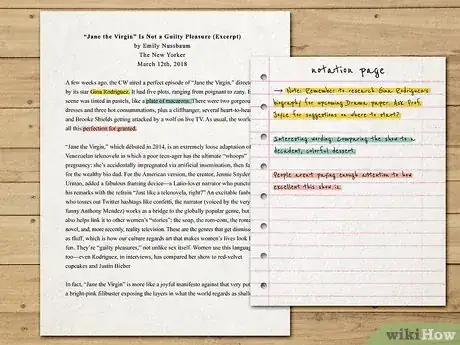 “Jane the Virgin” Is Not a Guilty Pleasure (Excerpt)
by Emily Nussbaum
The New Yorker
March 12th, 2018
A few weeks ago, the CW aired a perfect episode of “Jane the Virgin,” direc
by its star Gina Rodriguez. It had five plots, ranging from poignant to zany. E
scene was tinted in pastels, like a plate of macarons. There were two gorgeous
dresses and three hot consummations, plus a cliffhanger, several heart-to-heart
and Brooke Shields getting attacked by a wolf on live TV. As usual, the world
all this perfection for granted.
“Jane the Virgin,” which debuted in 2014, is an extremely loose adaptation of
Venezuelan telenovela in which a poor teen-ager has the ultimate “whoops”
pregnancy: she’s accidentally impregnated via artificial insemination, then fa
for the wealthy bio dad. For the American version, the creator, Jennie Snyder
Urman, added a fabulous framing device—a Latin-lover narrator who punctu
his remarks with the refrain “Just like a telenovela, right?” An excitable fanb
who tosses out Twitter hashtags like confetti, the narrator (voiced by the very
funny Anthony Mendez) works as a bridge to the globally popular genre, but
also helps link it to other women’s “stories”: the soap, the rom-com, the roma
novel, and, more recently, reality television. These are the genres that get dismiss
as fluff, which is how our culture regards art that makes women’s lives look l
fun. They’re “guilty pleasures,” not unlike sex itself. Women use this language
too—even Rodriguez, in interviews, has compared her show to red-velvet
cupcakes and Justin Bieber
In fact, “Jane the Virgin” is more like a joyful manifesto against that very put
a bright-pink filibuster exposing the layers in what the world regards as shallo
notation page
→ Note: Remember to research Gina Rodriguez's
biography for upcoming Drama paper. Ask Prof.
Joyce for suggestions on where to start?
Interesting wording: Comparing the show to a
decadent, colorful dessert.
People aren't paying enough attention to how
excellent this show is.
wikiHow